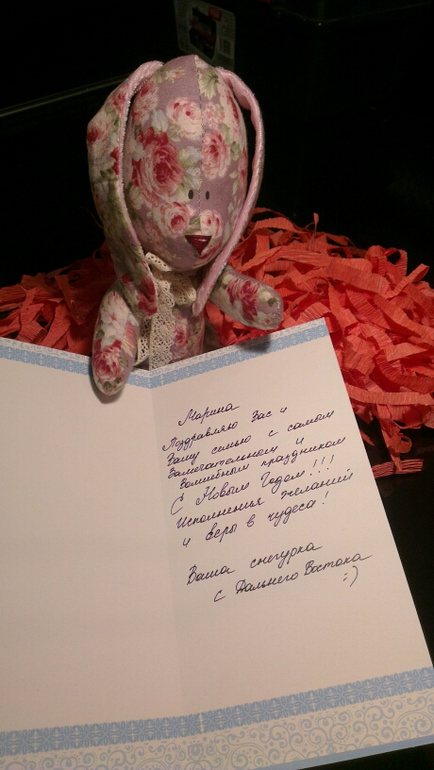 Марина
Поздравляю Вас и
Вашу семью с самым
Замечательным и
волшебным праздником
С Новым Годом!!!
Исполненья желаний
и веры в чудеса!
Ваша снегурка
с Дальнего Востока
:)